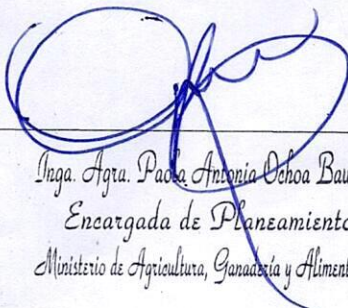 Inga. Agra. Paola Antonia Ochoa Bau
Encargada de Planeamiento
Ministerio de Agricultura, Ganadería y Aliment